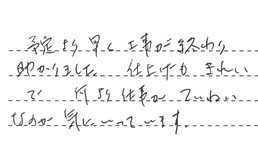 予定より早く工事が終わり
助かりました。仕上げもきれい
で 何より仕事がていねい
なのが気にいっています。